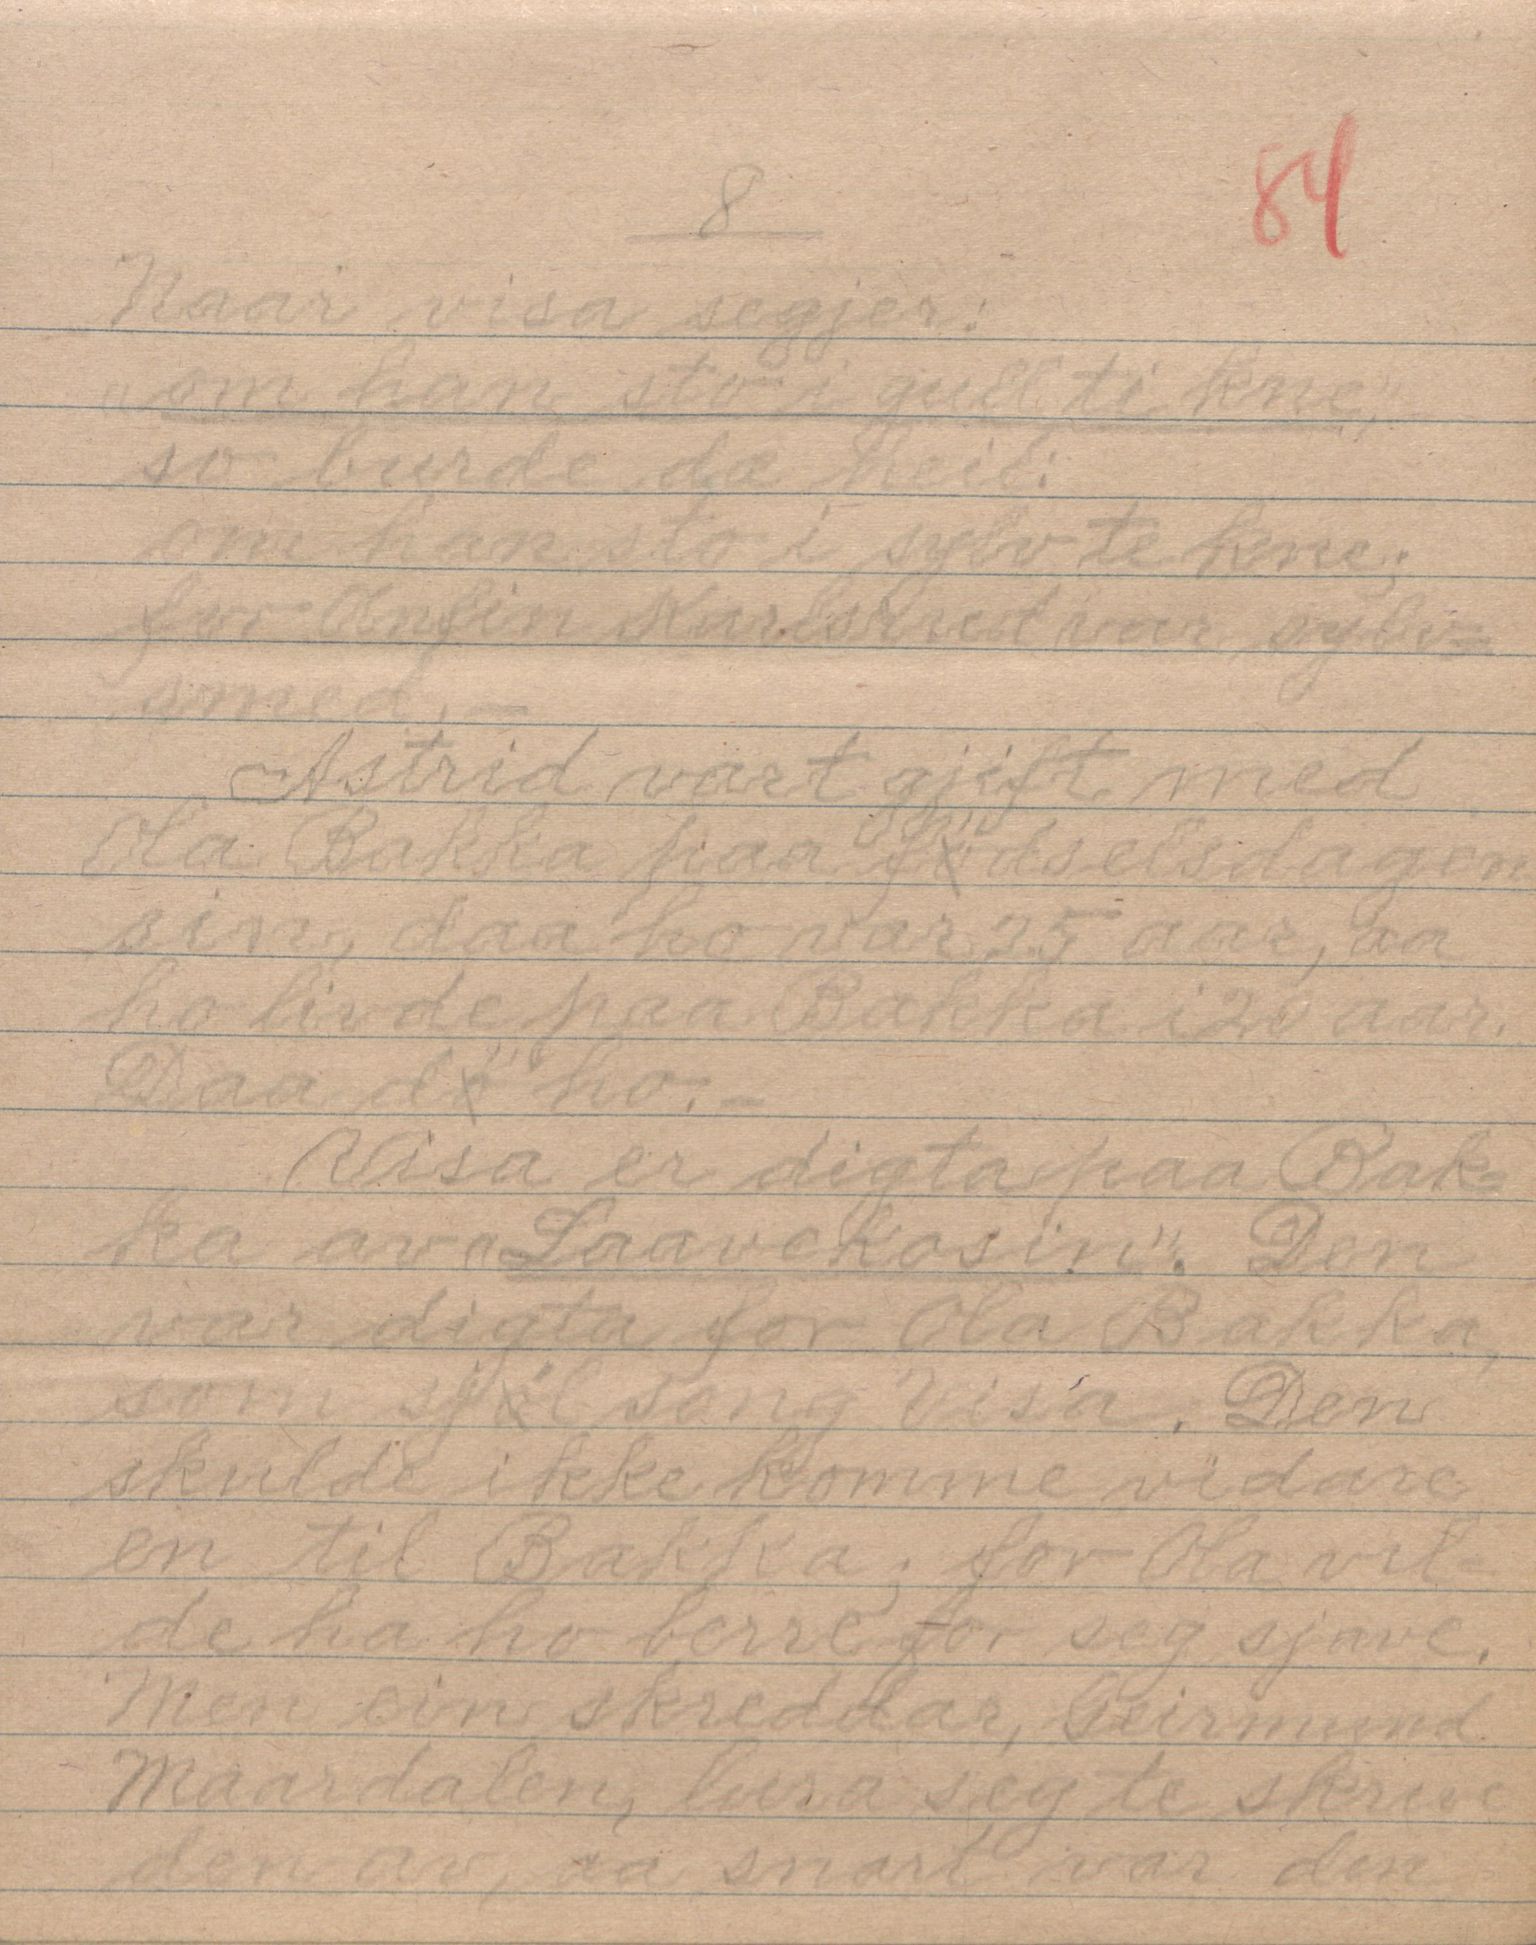 84
8
Naar visa segjer:
"om han sto i gull ti kne",
so burde dæ heit:
om han sto i sylv te kne;
for Anfin Karlsrud var sylv=
smed. –
Astrid vart gjift med
Ola Bakka paa födselsdagen
sin, daa ho var 25 aar, aa
ho livde paa Bakka i 20 aar.
Daa dö ho. –
Visa er digta paa Bak=
ka av "Laavekosin". Den
var digta for Ola Bakka,
som sjöl song visa. Den
skulde ikke komme vidare
en til Bakka; for Ola vil-
de ha ho berre for seg sjave.
Men ein skreddar, Geirmund
Maardalen, lura seg te skrive
den av, aa snart var den